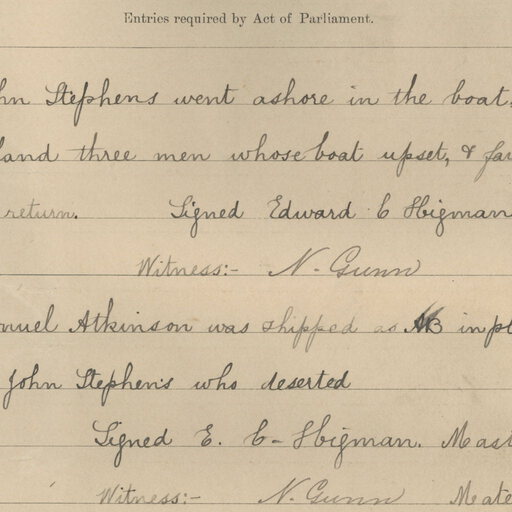 Entries required by Act of Parliament.
hn Stephens went ashore in the boat,
land three men whose boat upset, & fai
return. Signed Edward C Higman
Witness:- N. Gunn
muel Atkinson was shipped as AB in pl
John Stephens who deserted
Signed E. C- Higman. Mast
Witness:- N. Gunn Mate